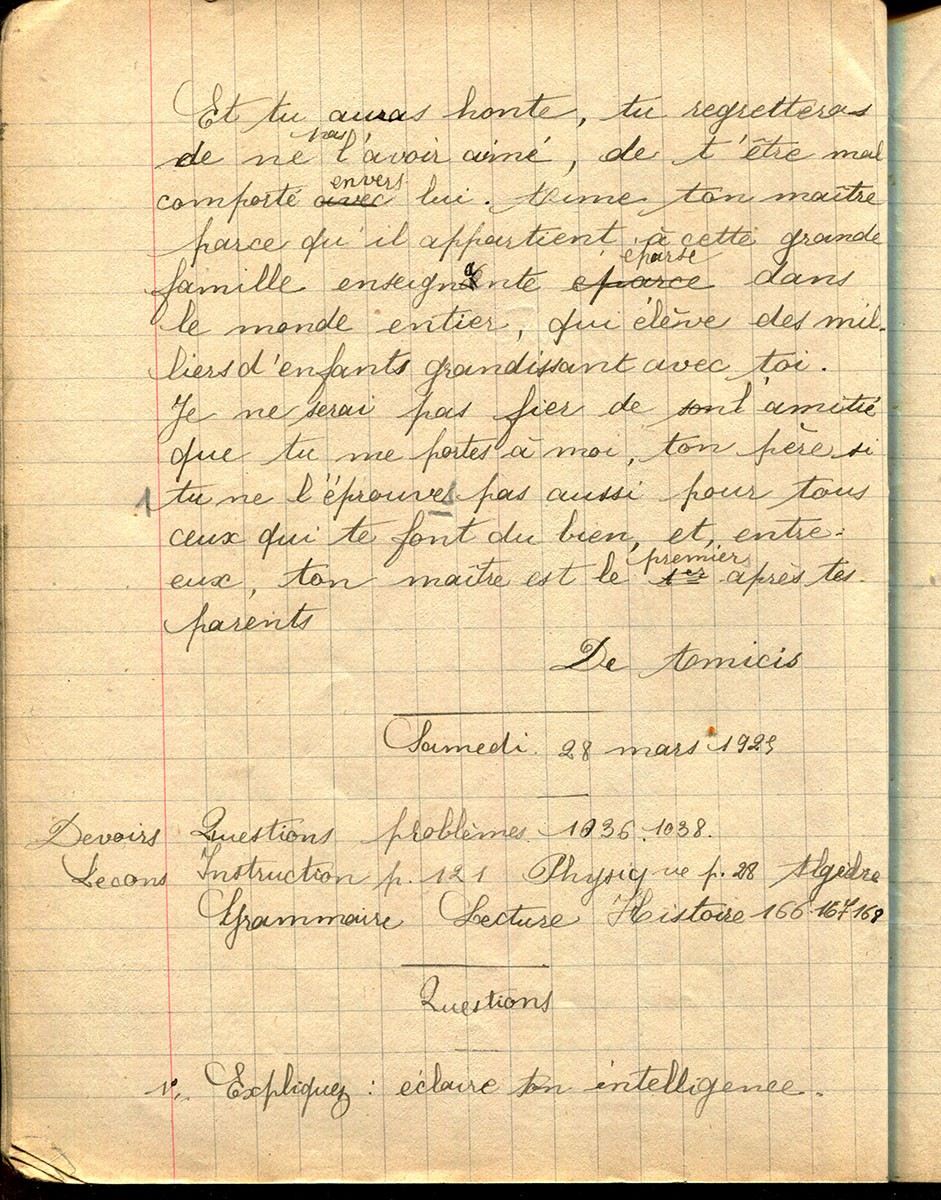 Et tu auras honte, tu regretteras
de ne pas l'avoir aimé, de t'être mal
comporté avec envers lui. Aime ton maître
parce qu'il appartient à cette grande
famille enseignante eparce eparse dans
le monde entier, qui élève des mil-
liers d'enfants grandissant avec toi.
Je ne serai pas fier de l'amitié
que tu me portes à moi, ton père si
1 tu ne l'éprouves pas aussi pour tous
ceux qui te font du bien, et, entre-
eux, ton maître est le 1er premier après tes
parents
De Amicis
Samedi 28 mars 1925
Devoirs Questions problèmes 1036.1038.
Lecons Instruction p. 121 Physique p. 28 Algèbre
Grammaire Lecture Histoire 166.167 168
Questions
1°. Expliquez : éclaire ton intelligence.